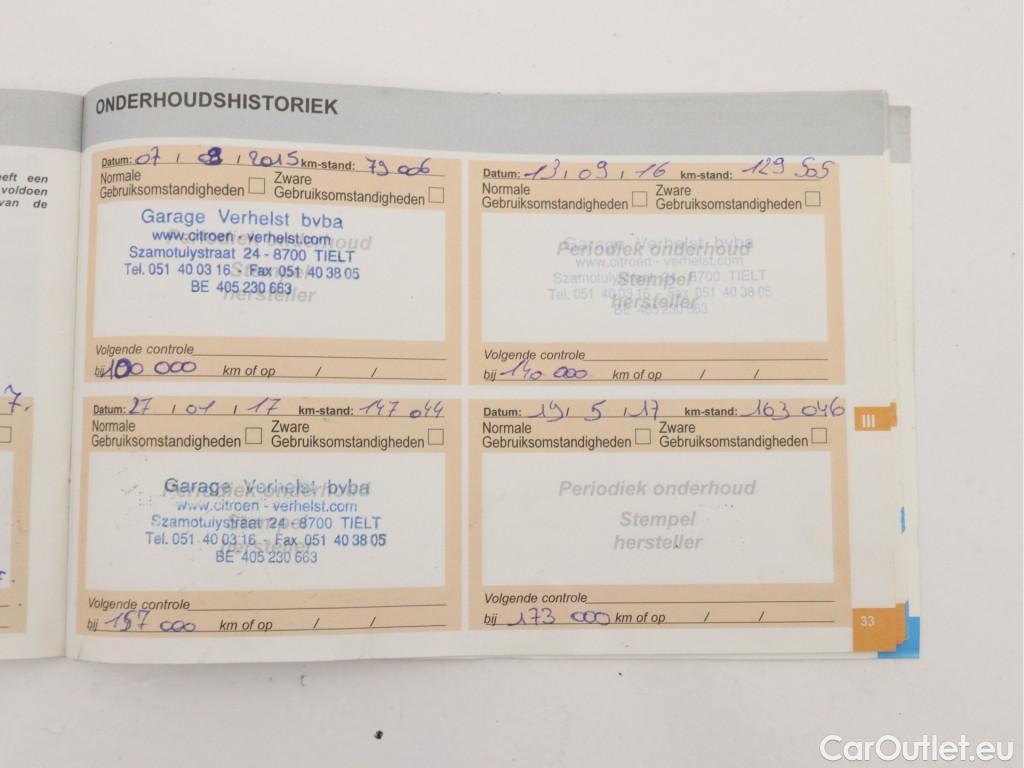 ONDERHOUDSHISTORIEK
eeft een
voldoen
van de
7.
Datum: 07 / 08 / 2015 km-stand: 79 006
Normale Gebruiksomstandigheden
Zware Gebruiksomstandigheden
Garage Verhelst bvba
www.citroen - verhelst.com
Szamotulystraat 24 - 8700 TIELT
Tel. 051 40 03 16 - Fax 051 40 38 05
BE 405 230 663
Periodiek onderhoud
Stempel
hersteller
Volgende controle
bij 100 000 km of op / /
Datum: 13 / 09 / 16 km-stand: 129 505
Normale Gebruiksomstandigheden
Zware Gebruiksomstandigheden
Garage Verhelst bvba
www.citroen - verhelst.com
Szamotulystraat 24 - 8700 TIELT
Tel. 051 40 03 16 - Fax 051 40 38 05
BE 405 230 663
Periodiek onderhoud
Stempel
hersteller
Volgende controle
bij 140 000 km of op / /
Datum: 27 / 01 / 17 km-stand: 147 044
Normale Gebruiksomstandigheden
Zware Gebruiksomstandigheden
Garage Verhelst bvba
www.citroen - verhelst.com
Szamotulystraat 24 - 8700 TIELT
Tel. 051 40 03 16 - Fax 051 40 38 05
BE 405 230 663
Periodiek onderhoud
Stempel
hersteller
Volgende controle
bij 157 000 km of op / /
Datum: 19 / 5 / 17 km-stand: 163 046
Normale Gebruiksomstandigheden
Zware Gebruiksomstandigheden
Periodiek onderhoud
Stempel
hersteller
Volgende controle
bij 173 000 km of op / /
III
33
CarOutlet.eu